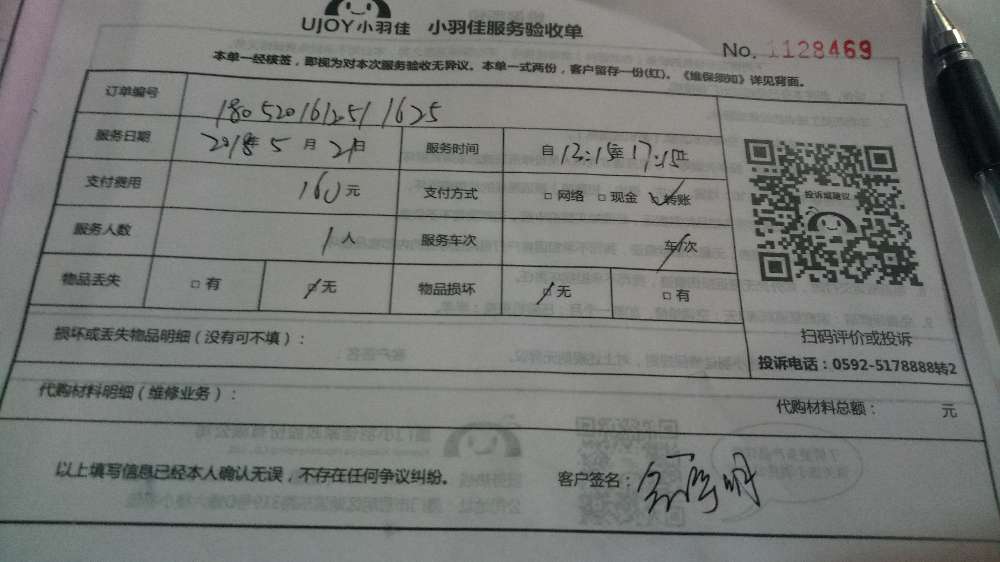 UJOY小羽佳 小羽佳服务验收单
No. 1128469
本单一经核签，即视为对本次服务验收无异议。本单一式两份，客户留存一份(红)。《维保须知》详见背面。
订单编号 180520161251 1625
服务日期 2018年 5 月 21日 服务时间 自 13:15至 17:15止
支付费用 160元 支付方式 □ 网络 □ 现金 ☑ 转账
服务人数 1 人 服务车次 车/次
物品丢失 □ 有 ☑ 无 物品损坏 ☑ 无 □ 有
投诉或建议
扫码评价或投诉
投诉电话：0592-5178888转2
损坏或丢失物品明细（没有可不填）：
代购材料明细（维修业务）：
代购材料总额： 元
以上填写信息已经本人确认无误，不存在任何争议纠纷。 客户签名：